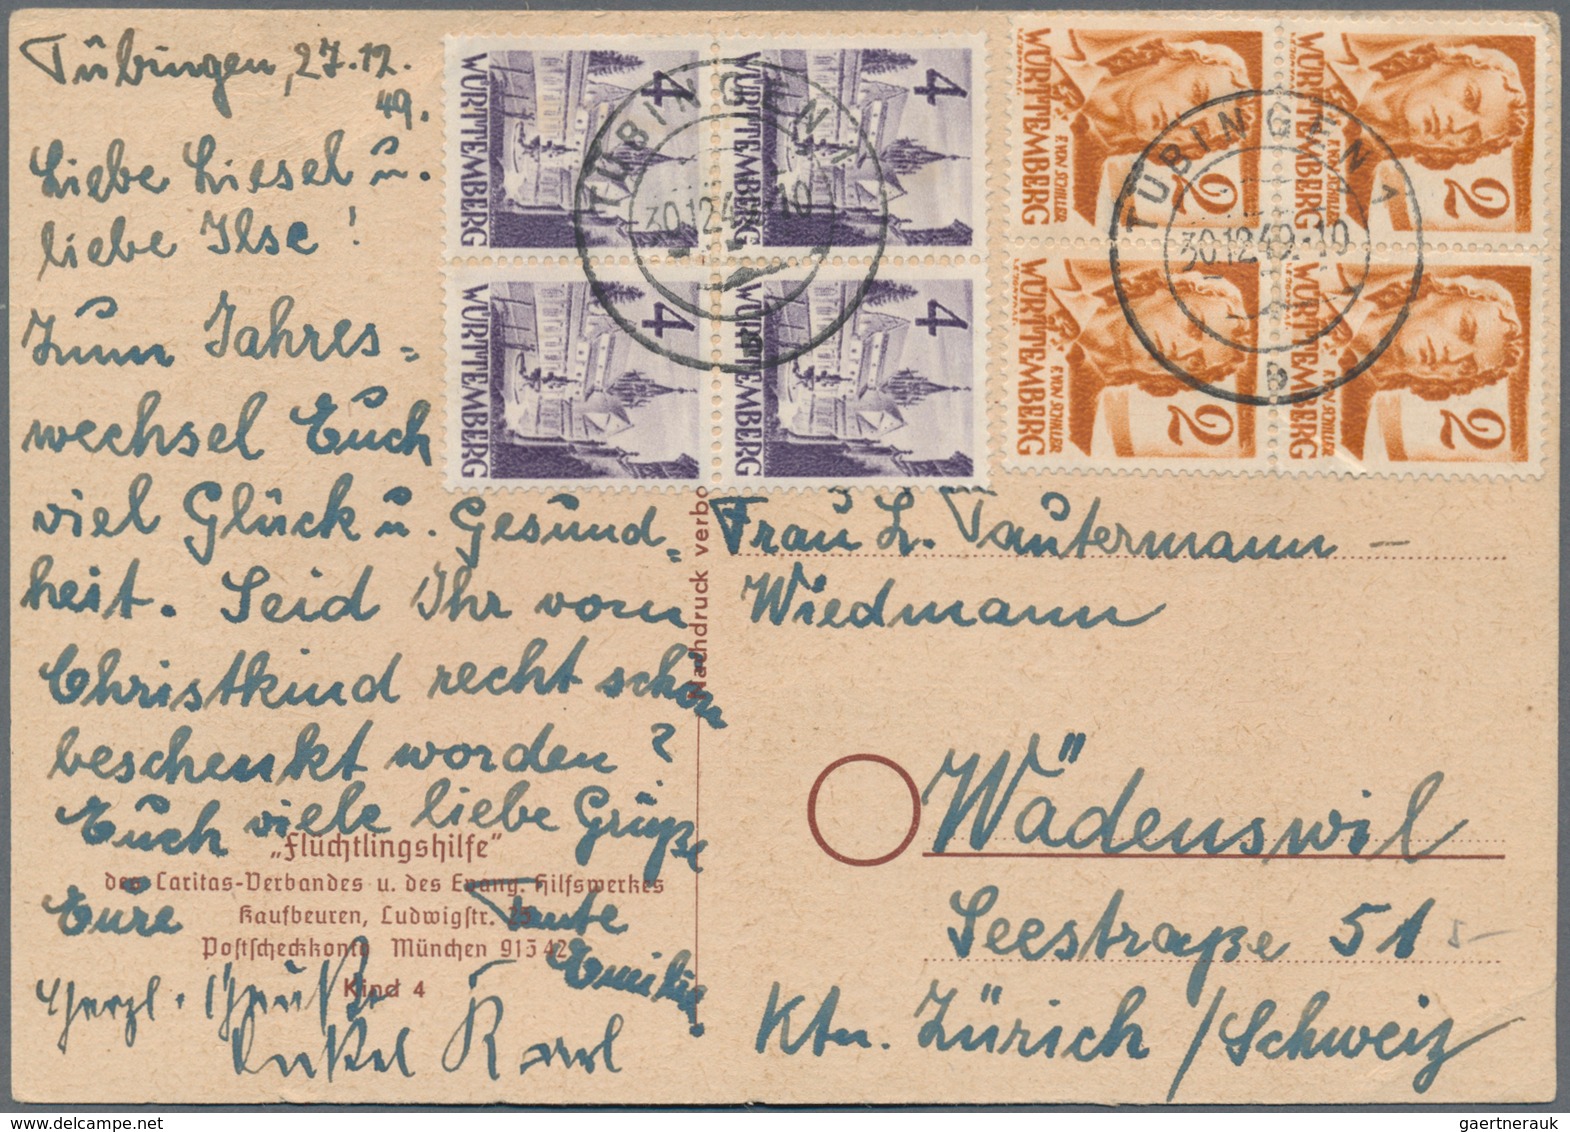 Tübingen, 27.12.
49.
Liebe Liesel u.
liebe Ilse!
Zum Jahres=
wechsel Euch
viel Glück u. Gesund=
heit. Seid Ihr vom
Christkind recht schön
beschenkt worden?
Euch viele liebe Grüße
Eure Tante
Emilie.
Herzl. Grüße
Onkel Karl
"Flüchtlingshilfe"
des Caritas-Verbandes u. des Evang. Hilfswerkes
Kaufbeuren, Ludwigstr.
Postscheckkonto München 91342
Kind 4
Nachdruck verbo
WÜRTTEMBERG 4
WÜRTTEMBERG 4
WÜRTTEMBERG 4
WÜRTTEMBERG 4
TÜBINGEN 1
30.12.49.-10
WÜRTTEMBERG F.VON SCHILLER 2
WÜRTTEMBERG F.VON SCHILLER 2
WÜRTTEMBERG F.VON SCHILLER 2
WÜRTTEMBERG F.VON SCHILLER 2
TÜBINGEN 1
30.12.49.-10
b
Frau L. Tautermann -
Wiedmann
Wädenswil
Seestraße 51
Ktn. Zürich / Schweiz
gaertnerauk @ delcampe.net